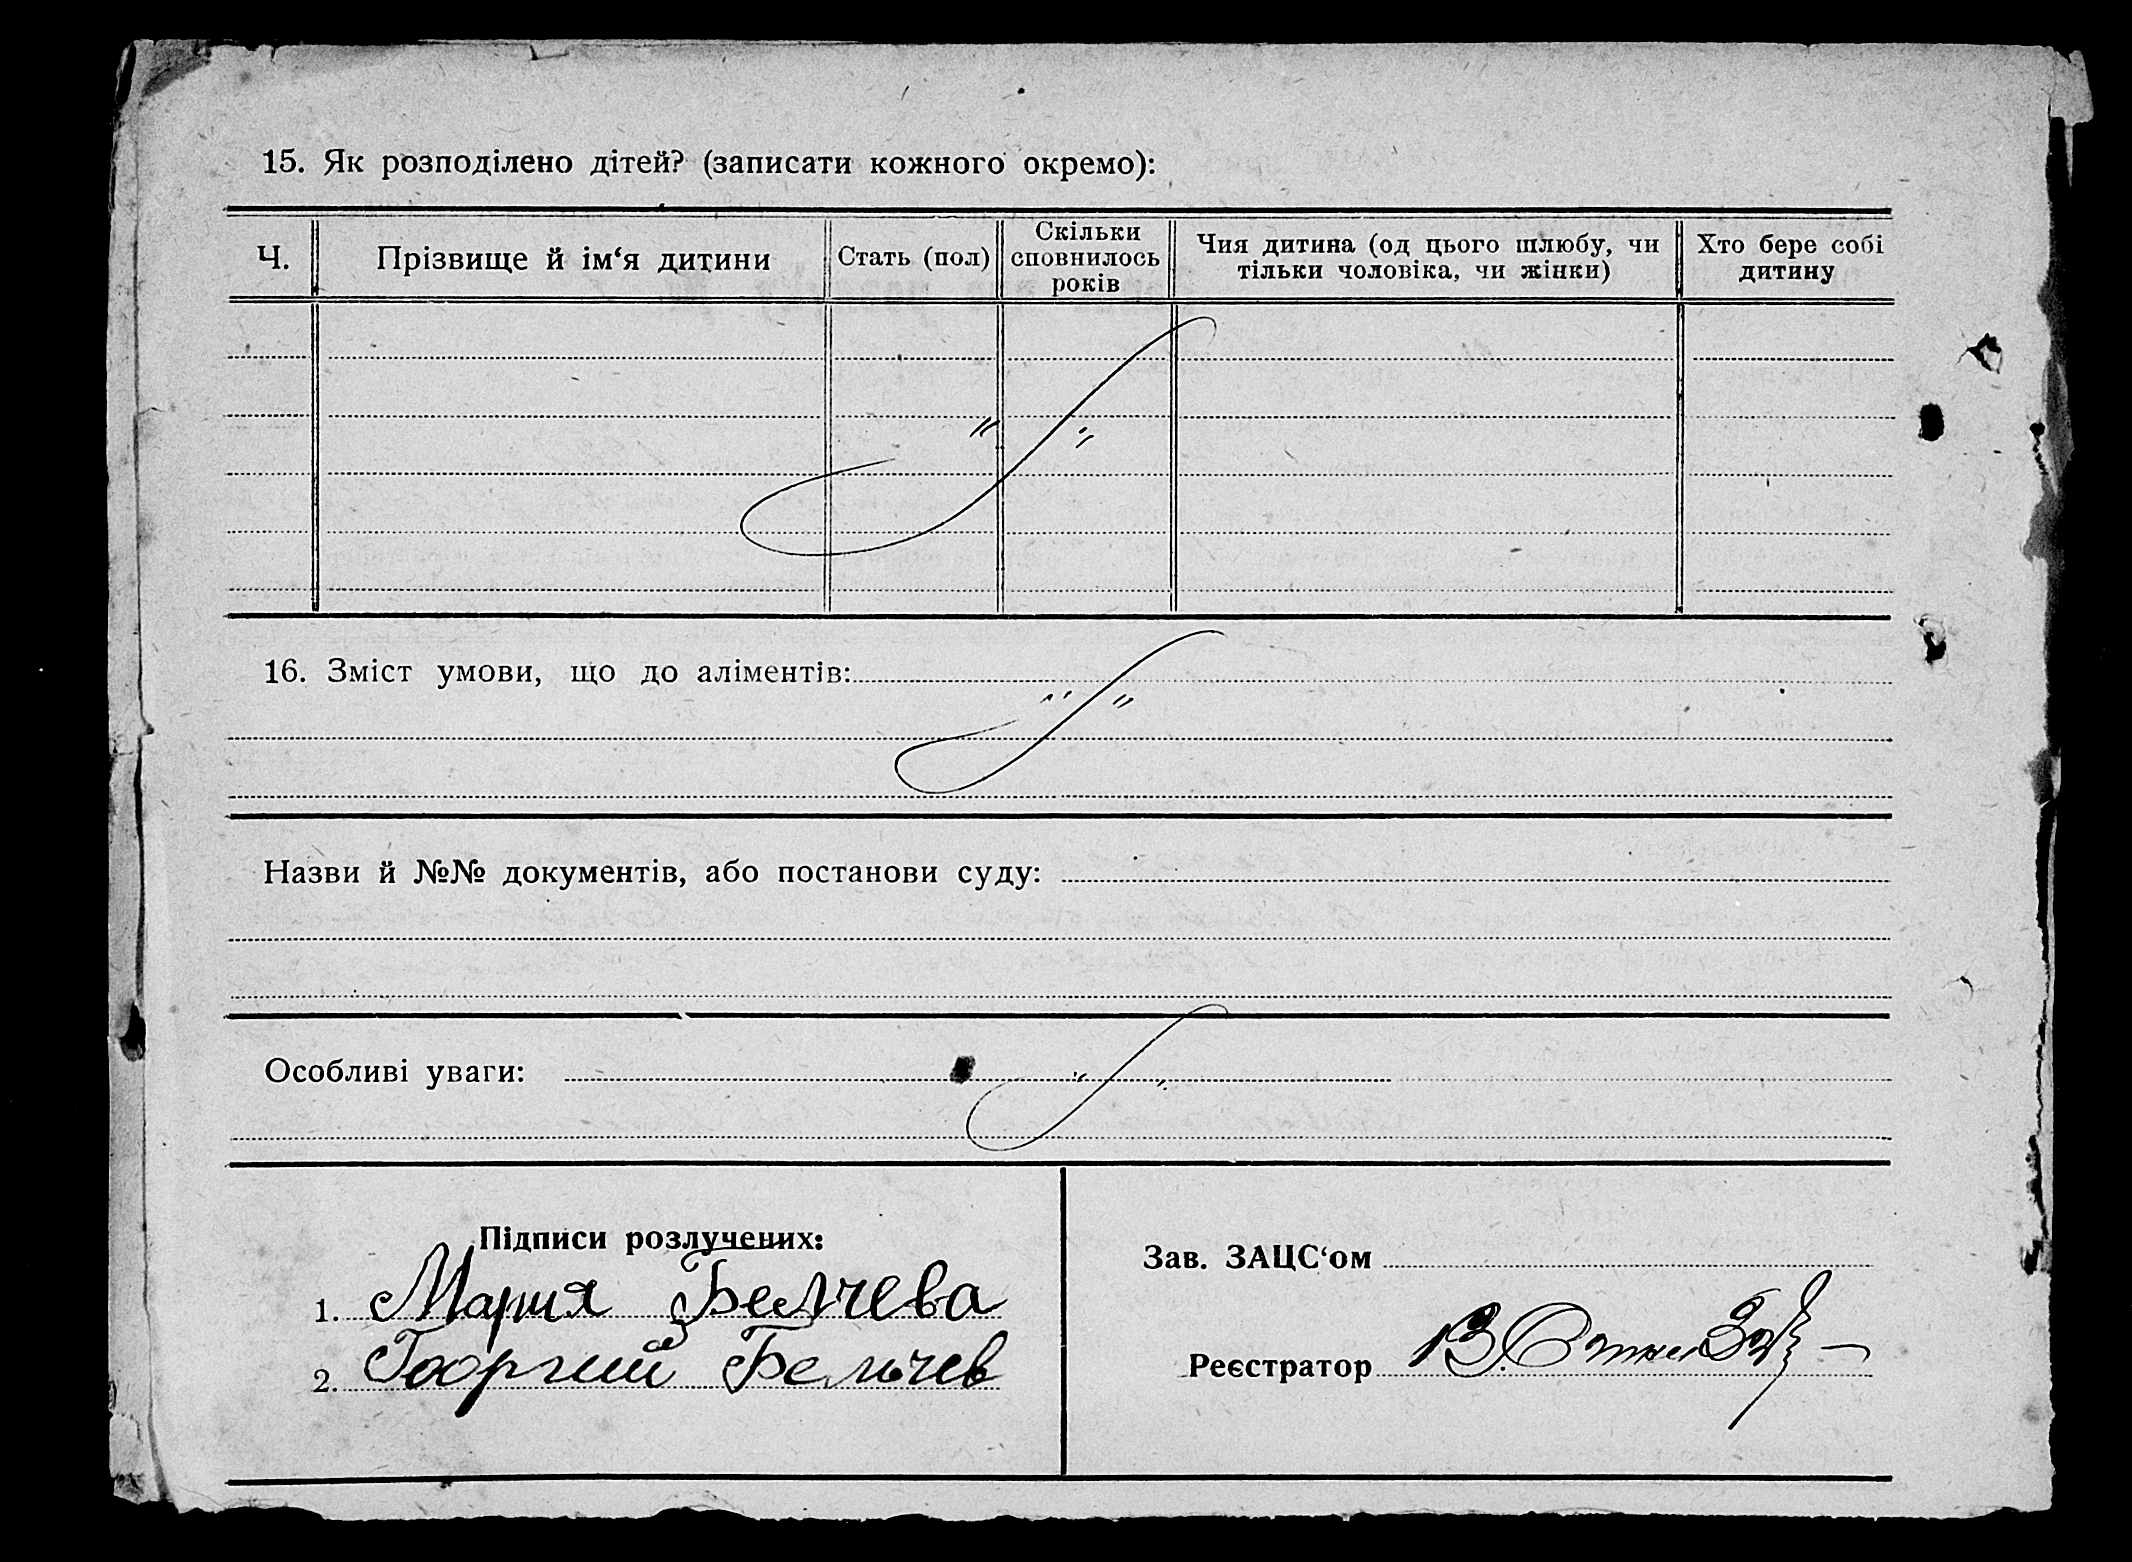 15. Як розподілено дітей? (записати кожного окремо):
Ч.
Прізвище й ім‘я дитини
Стать (пол)
Скільки
сповнилось
років
Чия дитина (од цього шлюбу, чи
тільки чоловіка, чи жінки)
Хто бере собі
дитину
16. Зміст умови, що до аліментів:
Назви й №№ документів, або постанови суду:
Особливі уваги:
Підписи розлучених:
1. Мария Белчева
2. Георгий Бельчев
Зав. ЗАЦС‘ом
Реєстратор В.